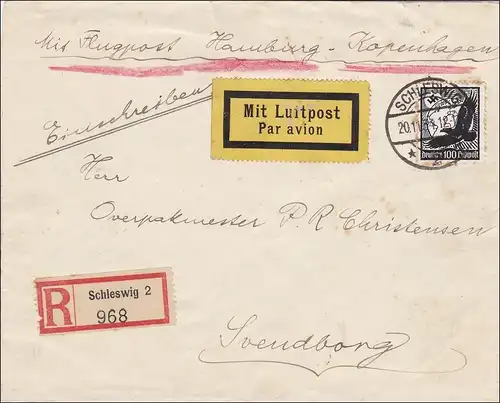 Mit Flugpost Hamburg - Kopenhagen
Einschreiben
Mit Luftpost
Par avion
SCHLESWIG
20.11.
Deutsche 100 Flugpost
Herr
Overpakmester P. R. Christensen
R
Schleswig 2
968
Svendborg